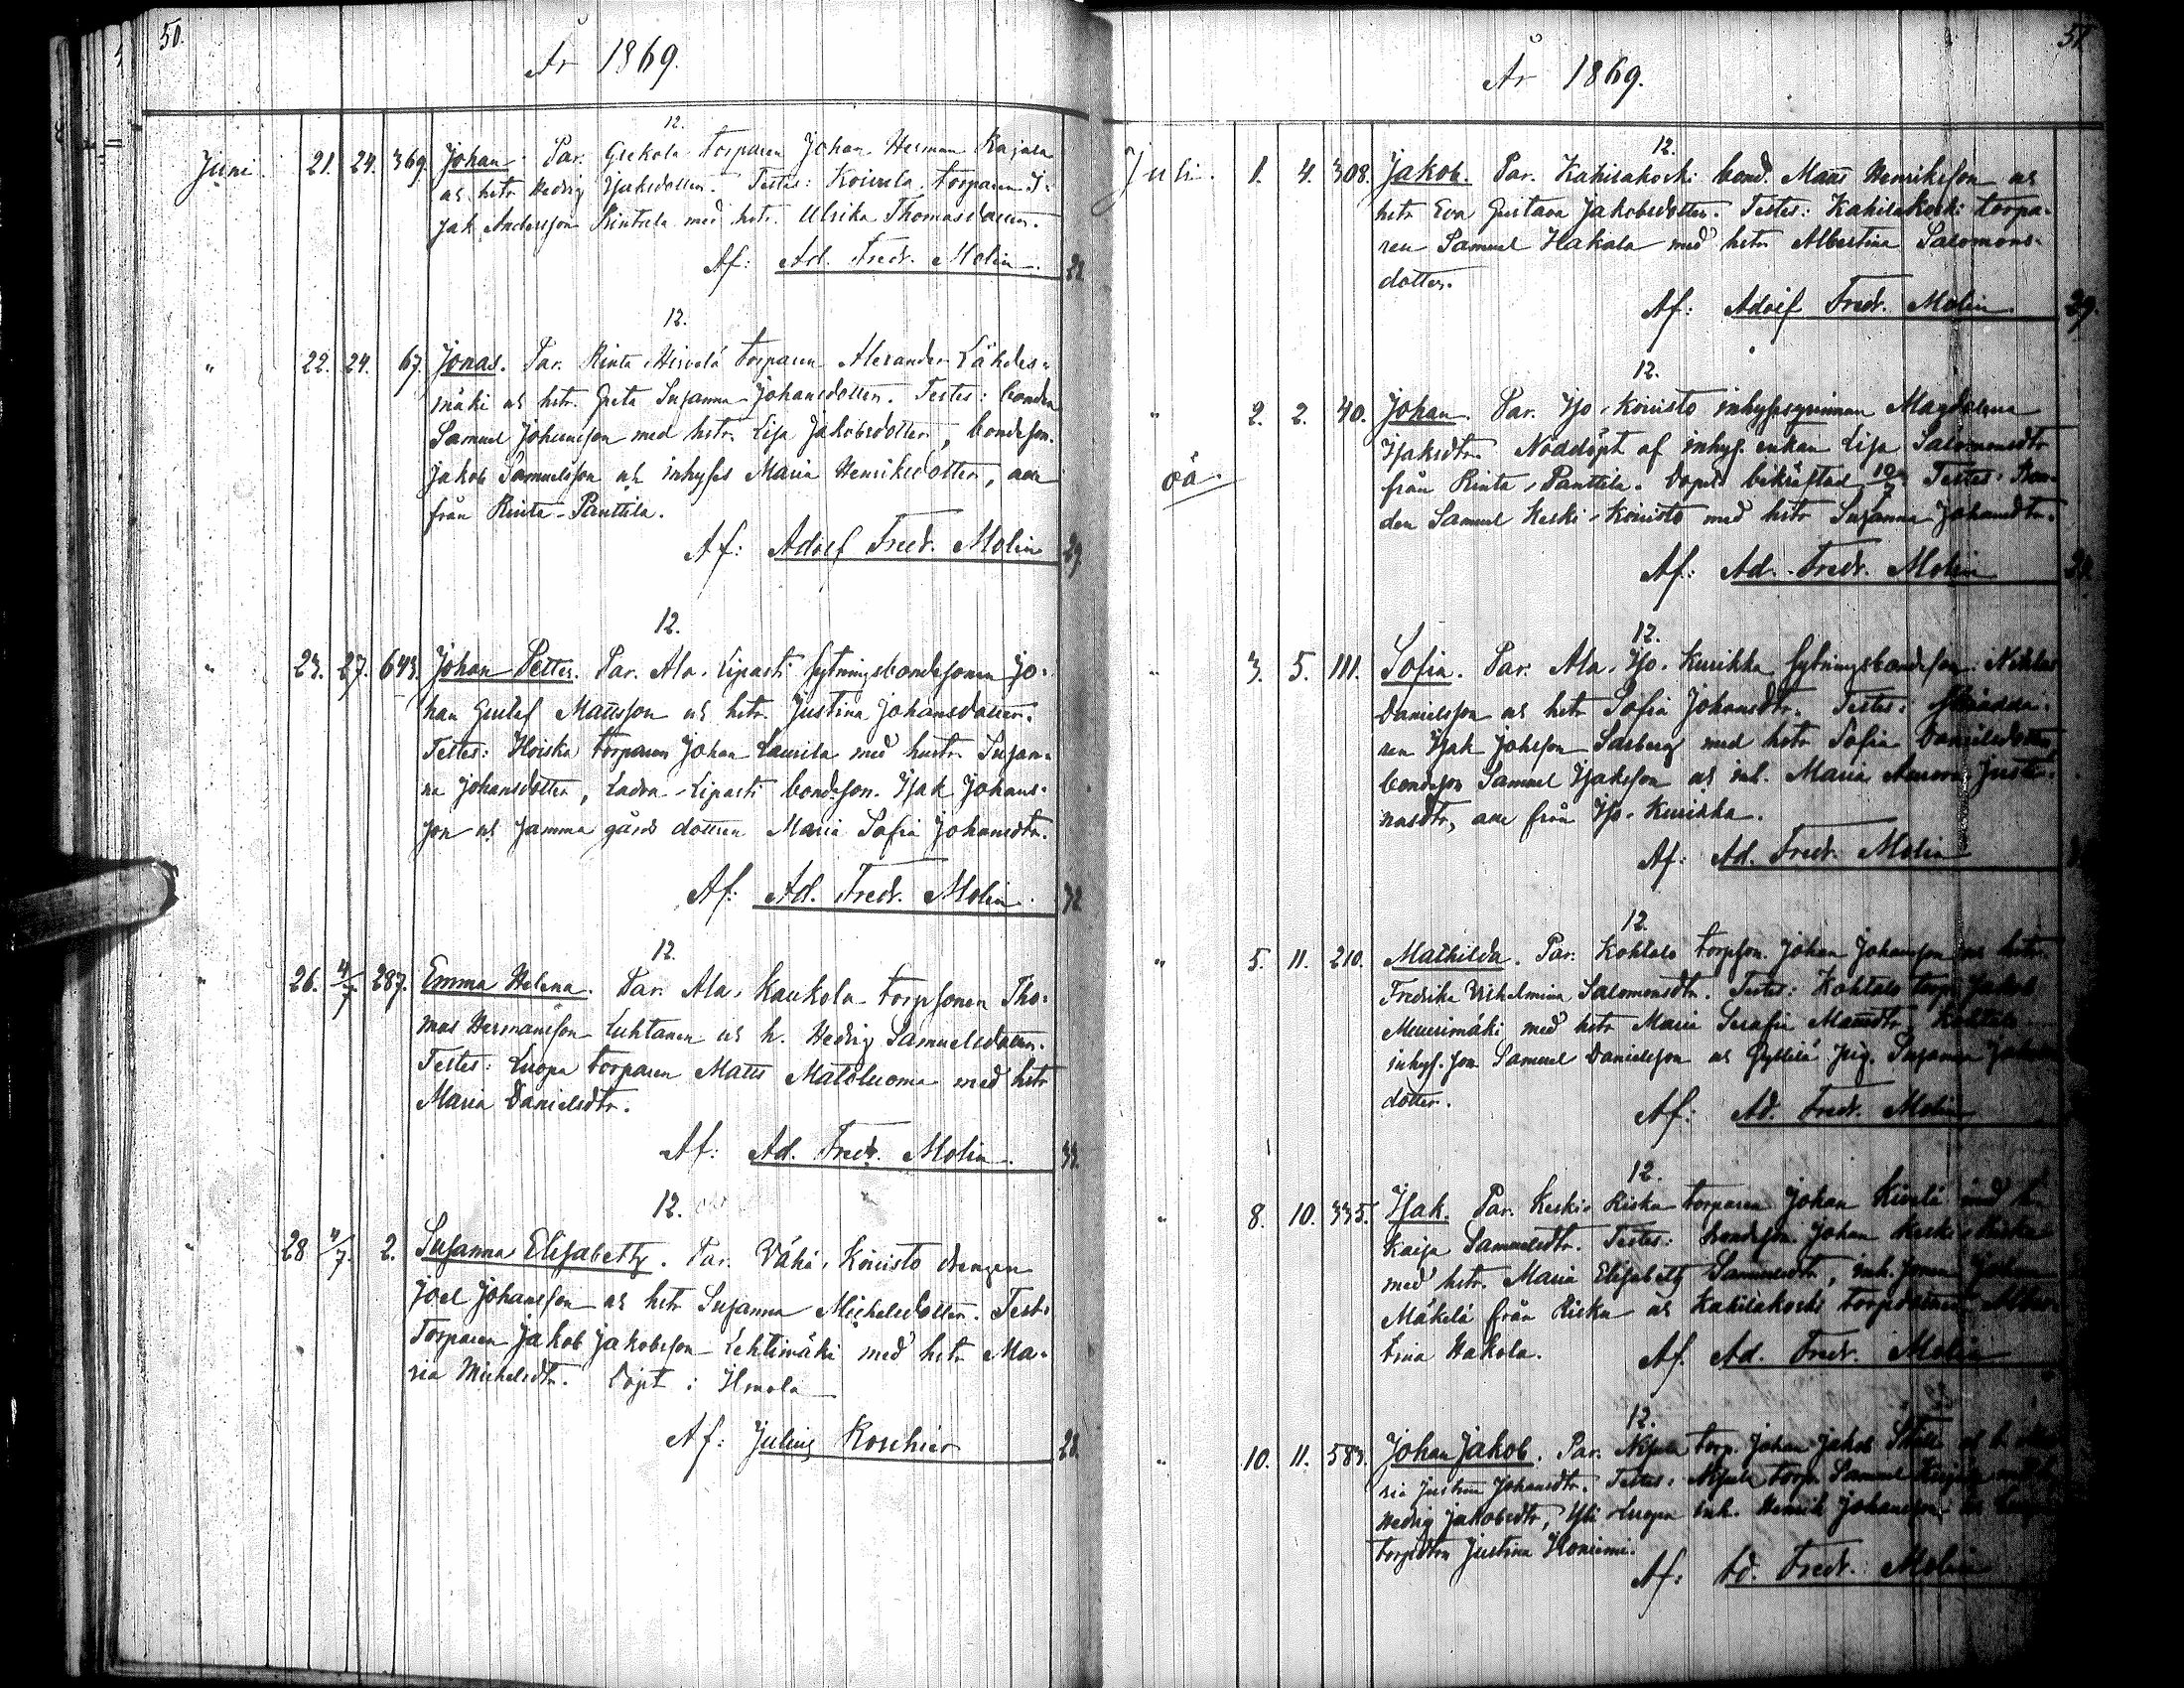 50.
År 1869.
12.
Juni. 21. 24. 369. Johan. Par. Grekola torparen Johan Herman Rajala
och hstr Hedvig Isaksdotter. Testes: Koivula torparen I-
sak Andersson Rintala med hstr. Ulrika Thomasdotter.
Af: Ad. Fredr. Molin. 22.
12.
" 22. 24. 67. Jonas. Par. Rinta-Hirvelä torparen Alexander Lähdes-
mäki och hstr. Greta Susanna Johansdotter. Testes: bonden
Samuel Johansson med hstr. Lisa Jakobsdotter, bondeson.
Jakob Samuelsson och inhyses Maria Henriksdotter, alla
från Rinta-Panttila.
Af: Adolf Fredr. Molin 29.
12.
" 23. 27. 643. Johan Petter. Par. Ala-Liparti sytningsbondesonen Jo-
han Gustaf Mattsson och hstr. Justina Johansdotter.
Testes: Hoiska torparen Johan Laurila med hustr. Susan-
na Johansdotter, Ladva-Liparti bondeson. Isak Johans-
son och samma gårds dottren Maria Sofia Johansdtr.
Af: Ad. Fredr. Molin. 32.
12.
" 26. 4/7. 287. Emma Helena. Par. Ala-Kaukola torpsonen Tho-
mas Hermansson Luhtanen och h. Hedvig Samuelsdotter.
Testes: Luopa torparen Matts Mataluoma med hstr
Maria Danielsdtr.
Af: Ad. Fredr. Molin. 33.
12.
" 28 4/7. 2. Susanna Elisabeth. Par. Vähä-Koivisto drengen
Joel Johansson och hstr Susanna Michelsdotter. Test:
Torparen Jakob Jakobsson Lehtimäki med hstr Ma-
ria Michelsdtr. Döpt i Ilmola
Af: Julius Roschier 28.
51
År 1869.
12.
Juli. 1. 4. 308. Jakob. Par. Kahilakoski bond. Matts Henriksson och
hstr Eva Gustava Jakobsdotter. Testes: Kahilakoski torpa-
ren Samuel Hakala med hstr Albertina Salomons-
dotter.
Af: Adolf Fredr. Molin. 29.
12.
" 2. 2. 40. Johan. Par. Iso-Koivisto inhysesqvinnan Magdalena
Isaksdtr. Nöddöpt af inhys. enkan Lisa Salomonsdtr
oä. från Rinta-Panttila. Dopet bekräftad 10/7. Testes: Bon-
den Samuel Keski-Koivisto med hstr Susanna Johansdtr.
Af: Ad. Fredr. Molin
12.
" 3. 5. 111. Sofia. Par. Ala-Iso-Kurikka sytningsbondeson. Niklas
Danielsson och hstr Sofia Johansdtr. Testes: Skrädda-
ren Isak Johsson Sarberg med hstr Sofia Danielsdotter,
bondeson Samuel Isaksson och inh. Maria Aurora Justi-
nasdtr, alla från Iso-Kurikka.
Af: Ad. Fredr. Molin
12.
" 5. 11. 210. Mathilda. Par. Kohtala torpson. Johan Johansson och hstr
Fredrika Wilhelmina Salomonsdtr. Testes: Kohtala torp. Jakob
med hstr Maria Serafia Mattsdtr, Kohtala
inhys. son Samuel Danielsson och Gyllilä pig. Susanna
dotter.
Af: Ad. Fredr. Molin
12.
" 8. 10. 335. Isak. Par. Keski-Riska torparen Johan med h.
Kaisa Samuelsdtr. Testes: bondeson Johan Keski-Riska
med hstr. Maria Elisabeth Samuelsdtr, inh. sonen
Mäkelä från Riska och Kahilakoski torpdottren Alber-
tina Hakola. Af. Ad. Fredr. Molin
12.
" 10. 11. 583. Johan Jakob. Par. torp. Johan Jakob och h.
ria Justina Johansdtr. Testes: torp. Samuel
Hedvig Jakobsdtr, Yli-Luopa inh. Henrik Johansson och
torpdtrn Justina Koniemi.
Af: Ad. Fredr. Molin